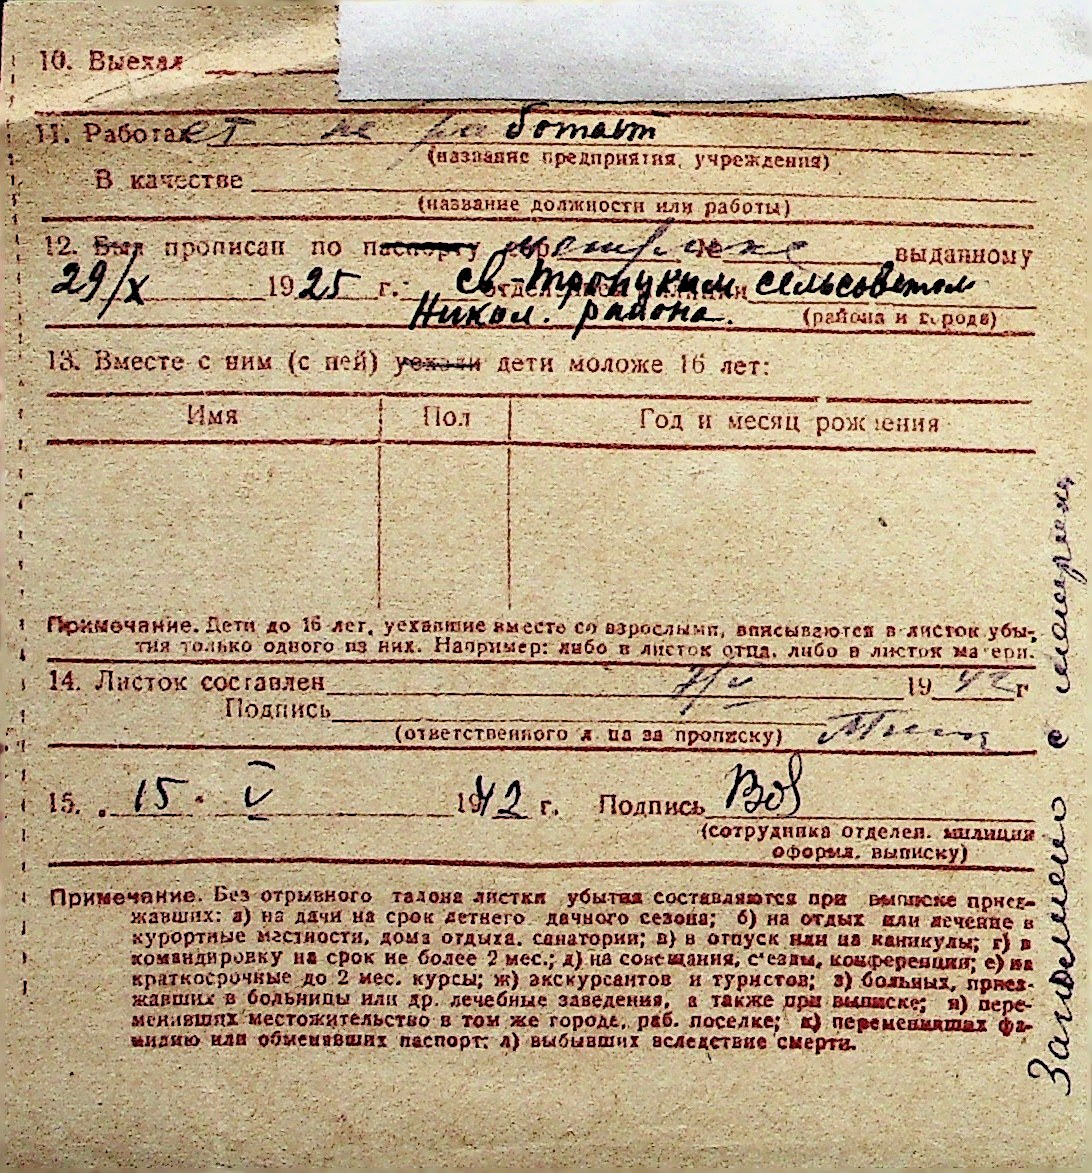 10. Выехал
11. Работает не работает
(название предприятия, учреждения)
В качестве
(название должности или работы)
12. Был прописан по паспорту метрике № выданному
29/X 1925 г. св-Троицким сельсоветом
Никол. района.
(района и города)
13. Вместе с ним (с ней) уехали дети моложе 16 лет:
Имя Пол Год и месяц рождения
Примечание. Дети до 16 лет, уехавшие вместе со взрослыми, вписываются в листок убы-
тия только одного из них. Например: либо в листок отца, либо в листок матери.
14. Листок составлен 7/V 1942 г
Подпись
(ответственного лица за прописку)
15. 15 V 1942 г. Подпись
(сотрудника отделен. милиции
оформл. выписку)
Примечание. Без отрывного талона листки убытия составляются при выписке приез-
жавших: а) на дачи на срок летнего дачного сезона; б) на отдых или лечение в
курортные местности, дома отдыха, санатории; в) в отпуск или на каникулы; г) в
командировку на срок не более 2 мес.; д) на совещания, с'езды, конференции; е) на
краткосрочные до 2 мес. курсы; ж) экскурсантов и туристов; з) больных, приез-
жавших в больницы или др. лечебные заведения, а также при выписке; и) пере-
менивших местожительство в том же городе, раб. поселке; к) переменивших фа-
милию или обменявших паспорт; л) выбывших вследствие смерти.